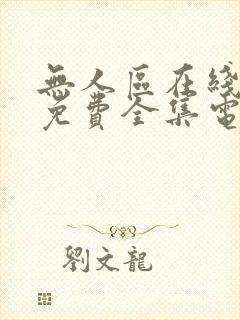 無人區在綫
免費全集電
劉文龍